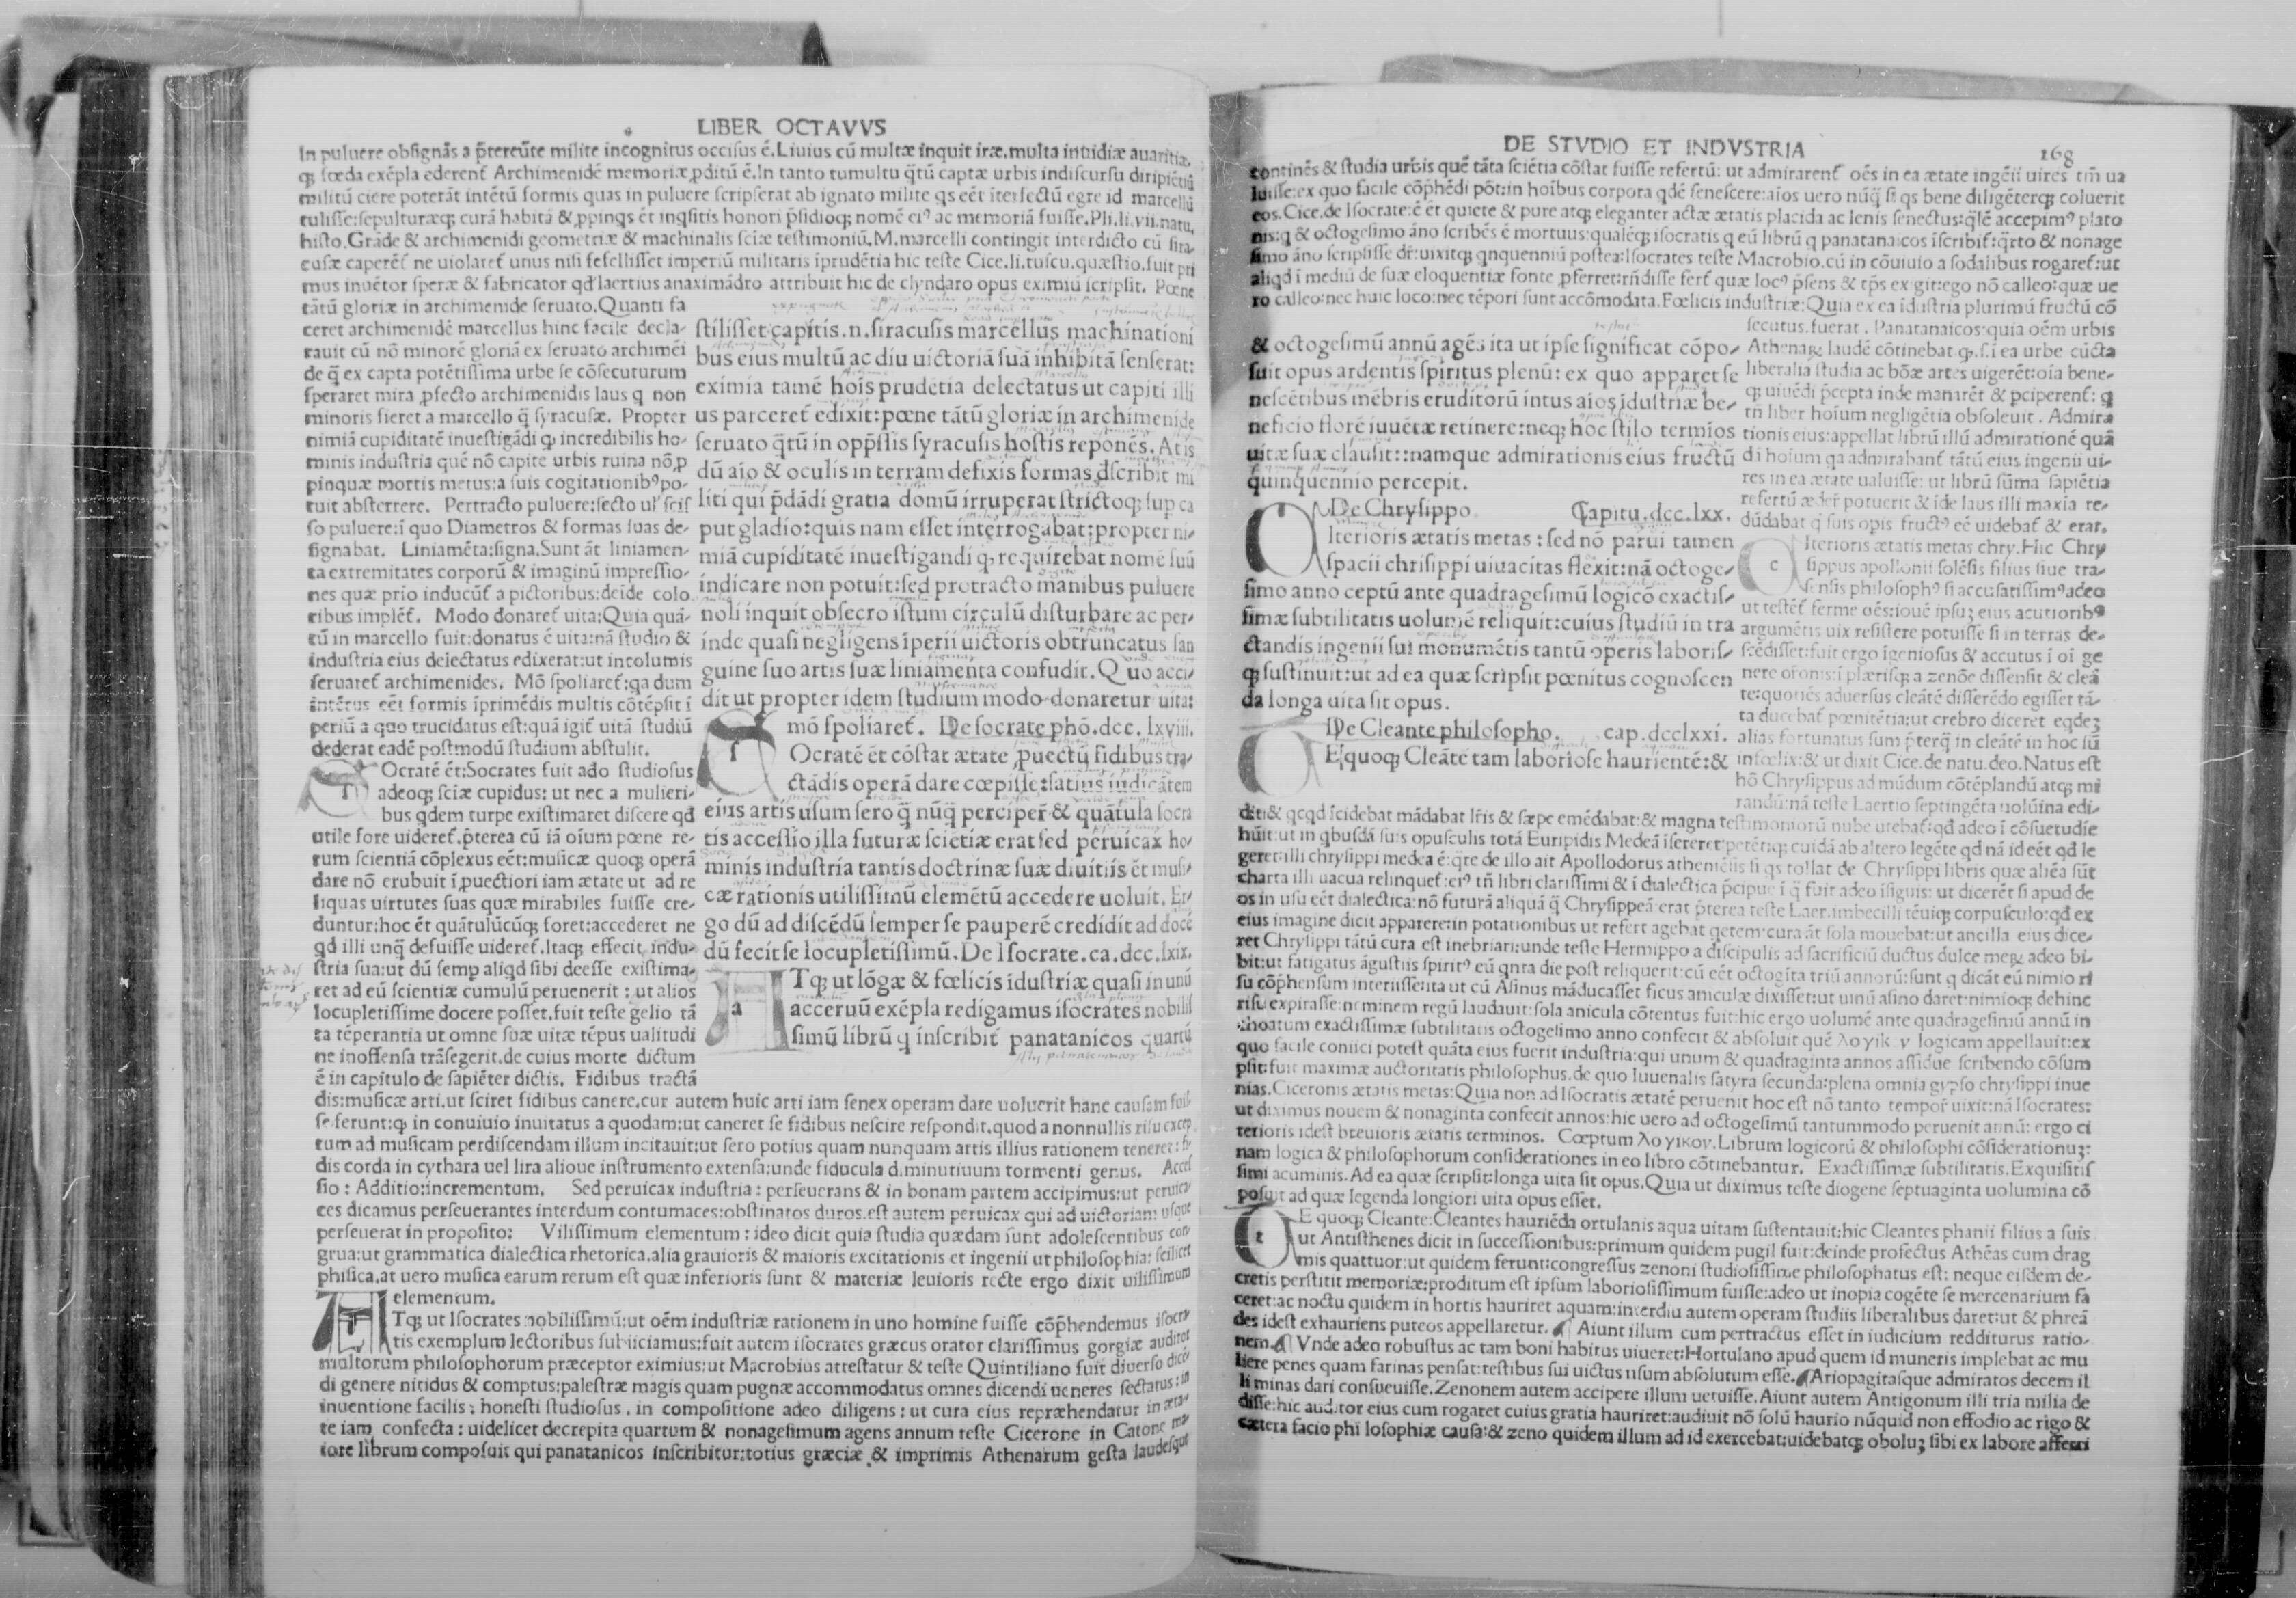 LIBER OCTAVVS
In puluere obsignās a p̄tereūte milite incognitus occisus ē. Liuius cū multæ inquit iræ. multa inuidiæ auaritiæ.
militū ciere poterāt intētū formis quas in puluere scripserat ab ignato milite qs eēt iterfectū egre id marcellū
histo. Grāde & archimenidi geometriæ & machinalis sciæ testimoniū. M. marcelli contingit interdicto cū sira-
cusæ caperēt ne uiolaret unus nisi fefellisset imperiū militaris īprudētia hic teste Cice. li. tuscu. quæstio. fuit pri
mus inuētor speræ & fabricator qđ laertius anaximādro attribuit hic de clyndaro opus eximiū scripsit. Pœne
tātū gloriæ in archimenide seruato. Quanti fa
ceret archimenidē marcellus hinc facile decla-
rauit cū nō minorē gloriā ex seruato archimēi
de q̄ ex capta potētissima urbe se cōsecuturum
speraret mira ꝓfecto archimenidis laus q non
minoris fieret a marcello q̄ syracusæ. Propter
nimiā cupiditatē inuestigādi ꝙ incredibilis ho-
minis industria quē nō capitē urbis ruina nō ꝓ
pinquæ mortis metus: a suis cogitationibꝰ po-
tuit absterrere. Pertracto puluere: secto ul' scis
so puluere: ī quo Diametros & formas suas de-
signabat. Liniamēta: signa. Sunt āt liniamen-
ta extremitates corporū & imaginū impressio-
nes quæ prio inducūt a pictoribus: deide colo
ribus implēt. Modo donaret uita: Quia quā-
tū in marcello fuit: donatus ē uita: nā studio &
industria eius delectatus edixerat: ut incolumis
seruaret archimenides. Mō spoliaret: qa dum
intētus eēt formis īprimēdis multis cōtēpsit ī
periū a quo trucidatus est: quā igit uitā studiū
dederat eadē postmodū studium abstulit.
stilisset capitis. n. siracusis marcellus machinationi
bus eius multū ac diu uictoriā suā inhibitā senserat:
eximia tamē hois prudētia delectatus ut capiti illi
us parceret edixit: pœne tātū gloriæ in archimenide
seruato q̄tū in opp̄ssis syracusis hostis reponēs. At is
dū aio & oculis in terram defixis formas dscribit mi
liti qui p̄dādi gratia domū irruperat strictoq; sup ca
put gladio: quis nam esset interrogabat: propter ni-
miā cupiditatē inuestigandi ꝙ requirebat nomē suū
indicare non potuit: sed protracto manibus puluere
noli inquit obsecro istum circulū disturbare ac per-
inde quasi negligens īperii uictoris obtruncatus san
guine suo artis suæ liniamenta confudit. Quo acci-
dit ut propter idem studium modo donaretur uita:
mō spoliaret. De socrate phō. dcc. lxviii.
SOcratē ēt cōstat ætate ꝓuectū fidibus tra-
ctādis operā dare cœpisse: satius indicātem
eius artis usum sero q̄ nūq̄ perciper̄ & quātula socra
tis accessio illa futuræ scietiæ erat sed peruicax ho-
minis industria tantis doctrinæ suæ diuitiis ēt musi-
cæ rationis utilissimū elemētū accedere uoluit. Er-
go dū ad discēdū semper se pauperē credidit ad docē
dū fecit se locupletissimū. De Isocrate. ca. dcc. lxix.
ATq; ut lōgæ & fœlicis īdustriæ quasi in unū
aceruū exēpla redigamus isocrates nobilis
simū librū q inscribit panatanicos quartū
SOcratē ēt: Socrates fuit ado studiosus
adeoq; sciæ cupidus: ut nec a mulieri-
bus qdem turpe existimaret discere qđ
utile fore uideret. p̄terea cū iā oīum pœne re-
rum scientiā cōplexus eēt: musicæ quoq; operā
dare nō erubuit ī ꝓuectiori iam ætate ut ad re
liquas uirtutes suas quæ mirabiles fuisse cre-
duntur: hoc ēt quātulūcūq; foret: accederet ne
qđ illi unq̄ defuisse uideret. Itaq; effecit indu-
stria sua: ut dū semp aliqd sibi deesse existima-
ret ad eū scientiæ cumulū peruenerit: ut alios
locupletissime docere posset. fuit teste gelio tā
ta tēperantia ut omne suæ uitæ tēpus ualitudi
ne inoffensa trāsegerit. de cuius morte dictum
ē in capitulo de sapiēter dictis. Fidibus tractā
dis: musicæ arti. ut sciret fidibus canere. cur autem huic arti iam senex operam dare uoluerit hanc causam fuis
se ferunt: ꝙ in conuiuio inuitatus a quodam: ut caneret se fidibus nescire respondit. quod a nonnullis risu excep
tum ad musicam perdiscendam illum incitauit: ut sero potius quam nunquam artis illius rationem teneret: fi-
dis corda in cythara uel lira alioue instrumento extensa: unde fiducula diminutiuum tormenti genus. Accef
sio: Additio: incrementum. Sed peruicax industria: perseuerans & in bonam partem accipimus: ut peruica
ces dicamus perseuerantes interdum contumaces: obstinatos duros. est autem peruicax qui ad uictoriam usque
perseuerat in proposito: Vilissimum elementum: ideo dicit quia studia quædam sunt adolescentibus con
grua: ut grammatica dialectica rhetorica. alia grauioris & maioris excitationis et ingenii ut philosophia: scilicet
phisica. at uero musica earum rerum est quæ inferioris sunt & materiæ leuioris recte ergo dixit uilissimum
elementum.
ATq; ut Isocrates nobilissimū: ut oēm industriæ rationem in uno homine fuisse cōp̄hendemus isocra
tis exemplum lectoribus subiiciamus: fuit autem isocrates græcus orator clarissimus gorgiæ auditor
multorum philosophorum præceptor eximius: ut Macrobius attestatur & teste Quintiliano fuit diuerso dicē
di genere nitidus & comptus: palestræ magis quam pugnæ accommodatus omnes dicendi ueneres sectatus: in
inuentione facilis: honesti studiosus. in compositione adeo diligens: ut cura eius repræhendatur in æta-
te iam confecta: uidelicet decrepita quartum & nonagesimum agens annum teste Cicerone in Catone ma
iore librum composuit qui panatanicos inscribitur: totius græciæ & imprimis Athenarum gesta laudesque
DE STVDIO ET INDVSTRIA
168
continēs & studia urbis quē tāta sciētia cōstat fuisse refertū: ut admirarent oēs in ea ætate ingēii uires tm̄ ua
luisse: ex quo facile cōp̄hēdi pōt: in hoibus corpora qdē senescere: aios uero nūq̄ si qs bene diligēterq; coluerit
eos. Cice. de Isocrate: ē ēt quiete & pure atq; eleganter actæ ætatis placida ac lenis senectus: q̄lē accepimꝰ plato
nis: q & octogesimo āno scribēs ē mortuus: qualēq; isocratis q eū librū q panatanaicos īscribit: q̄rto & nonage
simo āno scripsisse dr̄: uixitq; qnquenniū postea: Isocrates teste Macrobio. cū in cōuiuio a sodalibus rogaret: ut
aliqd ī mediū de suæ eloquentiæ fonte ꝓferret: rn̄disse fert quæ locꝰ p̄sens & tp̄s exigit: ego nō calleo: quæ ue
ro calleo: nec huic loco: nec tēpori sunt accōmodata. Fœlicis industriæ: Quia ex ea īdustria plurimū fructū cō
secutus. fuerat. Panatanaicos: quia oēm urbis
Athenaꝝ laudē cōtinebat ꝙ. s. ī ea urbe cūcta
liberalia studia ac bōæ artes uigerēt: oīa bene-
q; uiuēdi p̄cepta inde manarēt & pciperent: q
tn̄ liber hoium negligētia obsoleuit. Admira
tionis eius: appellat librū illū admirationē quā
di hoium qa admirabant tātū eius ingenii ui-
res in ea ætate ualuisse: ut librū sūma sapiētia
refertū æder̄ potuerit & īde laus illi maxīa re-
dūdabat q suis opis fructꝰ eē uidebat & erat.
& octogesimū annū agēs ita ut ipse significat cōpo-
suit opus ardentis spiritus plenū: ex quo apparet se
nescētibus mēbris eruditorū intus aios īdustriæ be-
neficio florē iuuētæ retinere: neq; hoc stilo termīos
uitæ suæ clausit: namque admirationis eius fructū
quinquennio percepit.
De Chrysippo. Capitu. dcc. lxx.
CIterioris ætatis metas: sed nō parui tamen
spacii chrisippi uiuacitas flexit: nā octoge-
simo anno ceptū ante quadragesimū logicō exactis-
simæ subtilitatis uolumē reliquit: cuius studiū in tra
ctandis ingenii sui monumētis tantū operis laboris-
q; sustinuit: ut ad ea quæ scripsit pœnitus cognoscen
da longa uita sit opus.
De Cleante philosopho. cap. dcclxxi.
E quoq; Cleāte tam laboriose haurientē: &
CIterioris ætatis metas chry. Hic Chry
sippus apollonii solēsis filius siue tra-
sensis philosophꝰ fi accusatissimꝰ adeo
ut testēt ferme oēs: iouē ipsuꝫ eius acutioribꝰ
argumētis uix resistere potuisse si in terras de-
scēdisset: fuit ergo īgeniosus & accutus ī oī ge
nere orōnis: ī plærisq; a zenōe dissensit & cleā
te: quoties aduersus cleātē disserēdo egisset tā-
ta ducebat pœnitētia: ut crebro diceret eqdeꝫ
alias fortunatus sum p̄terq̄ in cleāte in hoc sū
infœlix: & ut dixit Cice. de natu. deo. Natus est
hō Chrysippus ad mūdum cōtēplandū atq; mi
randū: nā teste Laertio septingēta uolūina edi-
dit: & qcqd īcidebat mādabat lr̄is & sæpe emēdabat: & magna testimoniorū nube utebat: qđ adeo ī cōsuetudie
hūit: ut in qbusdā suis opusculis totā Euripidis Medeā īsereret: petētiq; cuidā ab altero legēte qđ nā id eēt qđ le
geret: illi chrysippi medea ē: q̄re de illo ait Apollodorus atheniēsis si qs tollat de Chrysippi libris quæ aliēa sūt
charta illi uacua relinquet: eiꝰ tn̄ libri clarissimi & ī dialectica p̄cipue ī q̄ fuit adeo īsiguis: ut dicerēt si apud de
os in usu eēt dialectica: nō futurā aliquā q̄ Chrysippeā: erat p̄terea teste Laer. imbecilli tēuiq; corpusculo: qđ ex
eius imagine dicit apparere: in potationibus ut refert agebat qetem: cura āt sola mouebat: ut ancilla eius dice-
ret Chrysippi tātū cura est inebriari: unde teste Hermippo a discipulis ad sacrificiū ductus dulce meꝝ adeo bi-
bit: ut fatigatus āgustiis spiritꝰ eū qnta die post reliquerit: cū eēt octogīta triū annorū: sunt q dicāt eū nimio ri
su cōp̄hensum interiisse: ita ut cū Asinus māducasset ficus aniculæ dixisset: ut uinū asino daret: nimioq; dehinc
risu expirasse: neminem regū laudauit: sola anicula cōtentus fuit: hic ergo uolumē ante quadragesimū annū in
choatum exactissimæ subtilitatis octogesimo anno confecit & absoluit quē logicam appellauit: ex
quo facile coniici potest quāta eius fuerit industria: qui unum & quadraginta annos assidue scribendo cōsum
psit: fuit maximæ auctoritatis philosophus. de quo Iuuenalis satyra secunda: plena omnia gypso chrysippi inue
nias. Ciceronis ætatis metas: Quia non ad Isocratis ætatē peruenit hoc est nō tanto tempor̄ uixit: nā Isocrates:
ut diximus nouem & nonaginta confecit annos: hic uero ad octogesimū tantummodo peruenit annū: ergo ci
terioris idest breuioris ætatis terminos. Cœptum λογικον. Librum logicorū & philosophi cōsiderationuꝫ:
nam logica & philosophorum considerationes in eo libro cōtinebantur. Exactissimæ subtilitatis. Exquisitis
simi acuminis. Ad ea quæ scripsit: longa uita sit opus. Quia ut diximus teste diogene septuaginta uolumina cō
posuit ad quæ legenda longiori uita opus esset.
E quoq; Cleante: Cleantes hauriēda ortulanis aqua uitam sustentauit: hic Cleantes phanii filius a suis
ut Antisthenes dicit in successionibus: primum quidem pugil fuit: deinde profectus Athēas cum drag
mis quattuor: ut quidem ferunt: congressus zenoni studiosissime philosophatus est: neque eisdem de-
cretis perstitit memoriæ: proditum est ipsum laboriosissimum fuisse: adeo ut inopia cogēte se mercenarium fa
ceret: ac noctu quidem in hortis hauriret aquam: interdiu autem operam studiis liberalibus daret: ut & phreā
des idest exhauriens puteos appellaretur. ¶ Aiunt illum cum pertractus esset in iudicium redditurus ratio-
nem. ¶ Vnde adeo robustus ac tam boni habitus uiueret: Hortulano apud quem id muneris implebat ac mu
liere penes quam farinas pensat: testibus sui uictus usum absolutum esse. ¶ Ariopagitasque admiratos decem il
li minas dari consueuisse. Zenonem autem accipere illum uetuisse. Aiunt autem Antigonum illi tria milia de
disse: hic auditor eius cum rogaret cuius gratia hauriret: audiuit nō solū haurio nūquid non effodio ac rigo &
cætera facio philosophiæ causa: & zeno quidem illum ad id exercebat: uidebatq; oboluꝫ sibi ex labore afferri